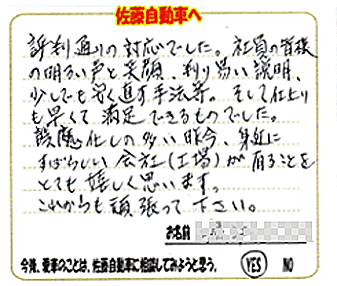 佐藤自動車へ
評判通りの対応でした。社員の皆様
の明るい声と笑顔、判り易い説明、
少しでも安く直す手法等。そして仕上り
も早くて満足できるものでした。
誤魔化しの多い昨今、身近に
すばらしい会社(工場)が有ることを
とても嬉しく思います。
これからも頑張って下さい。
お名前
今後、愛車のことは、佐藤自動車に相談してみようと思う。 YES NO